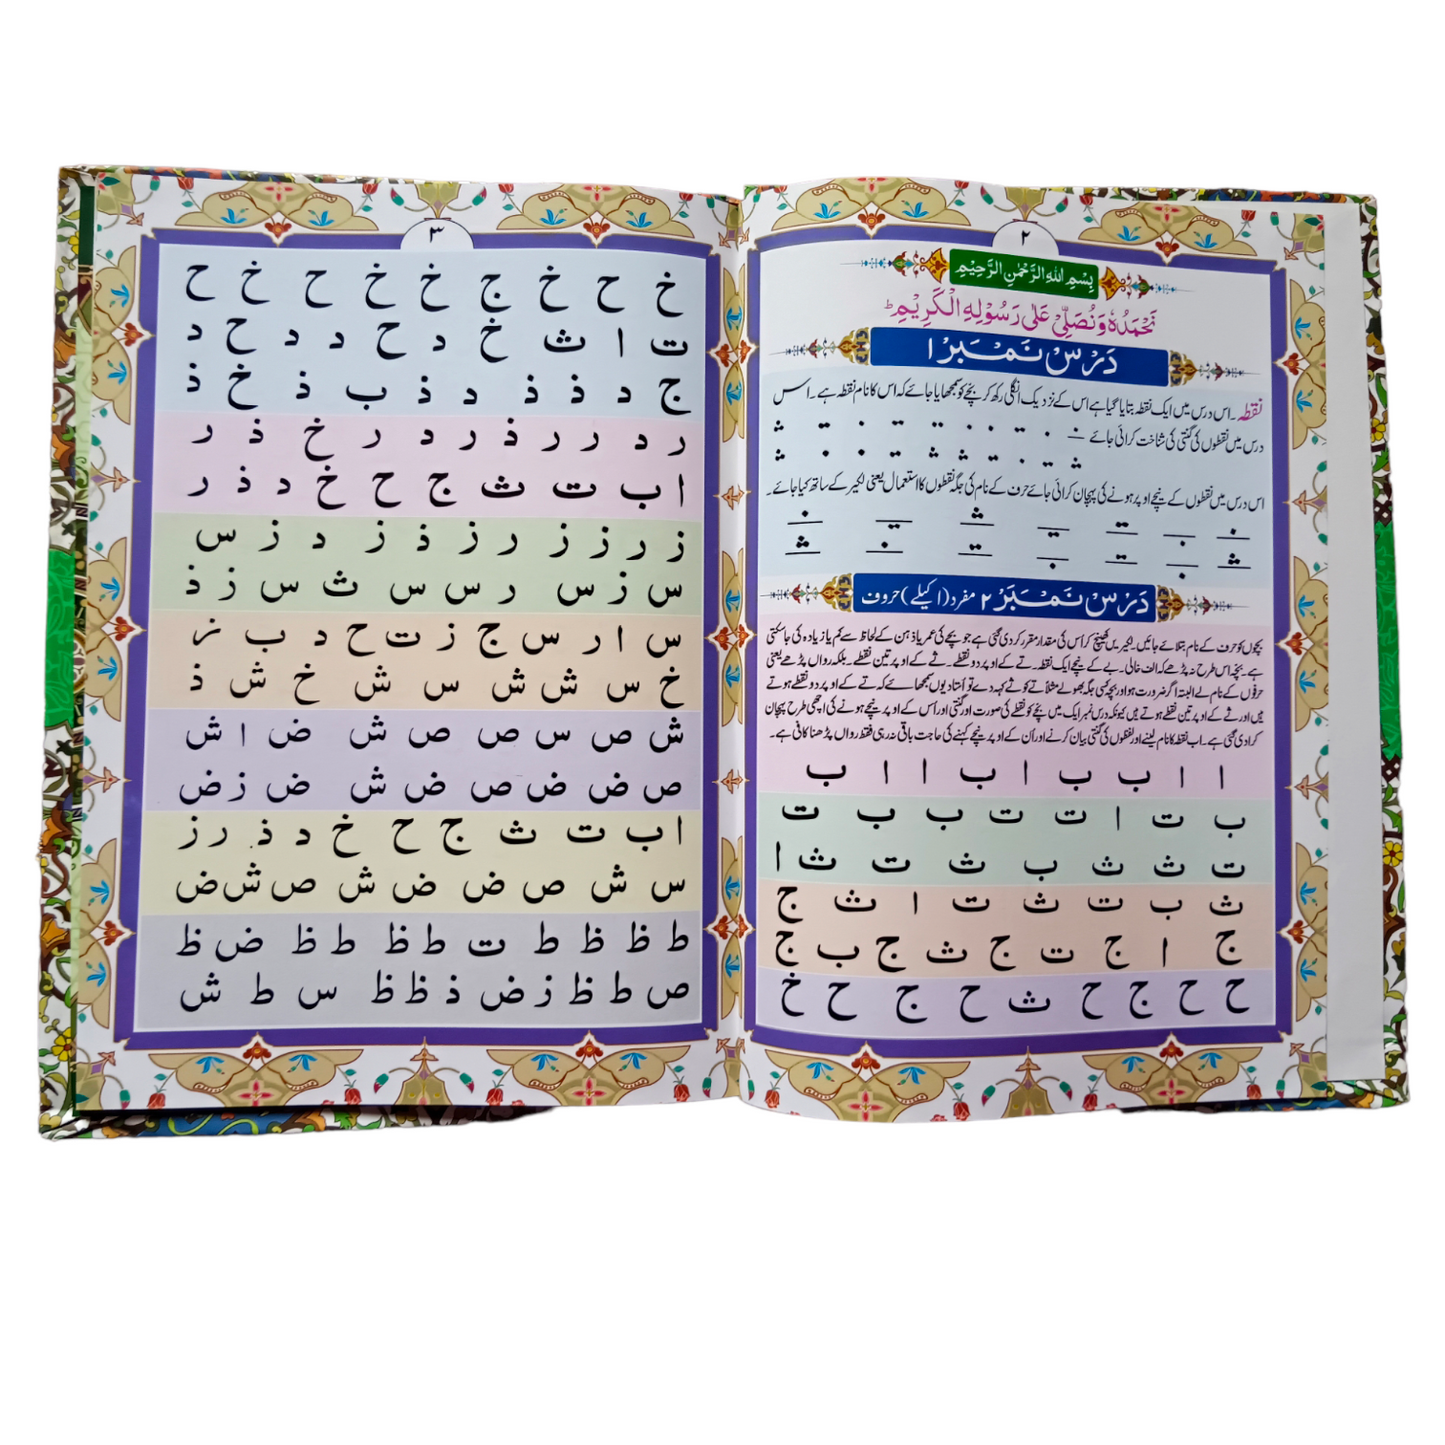 ٢
بِسْمِ اللهِ الرَّحْمٰنِ الرَّحِيْمِ
نَحْمَدُهٗ وَنُصَلِّیْ عَلٰی رَسُوْلِهِ الْكَرِيْمِ ط
دَرس نمبر ۱
نقطہ۔ اس درس میں ایک نقطہ بتایا گیا ہے اس کے نزدیک انگلی رکھ کر بچے کو سمجھایا جائے کہ اس کا نام نقطہ ہے۔ اس
درس میں نقطوں کی گنتی کی شناخت کرائی جائے
اس درس میں نقطوں کے نیچے اوپر ہونے کی پہچان کرائی جائے حرف کے نام کی جگہ نقطوں کا استعمال یعنی لکیر کے ساتھ کیا جائے۔
دَرس نمبر ۲ مفرد (اکیلے) حروف
بچوں کو حرف کے نام بتلائے جائیں۔ لکیریں کھینچ کر اس کی مقدار مقرر کر دی گئی ہے جو بچے کی عمر یا ذہن کے لحاظ سے کم یا زیادہ کی جا سکتی
ہے۔ بچہ اس طرح نہ پڑھے کہ الف خالی۔ بے کے نیچے ایک نقطہ۔ تے کے اوپر دو نقطے۔ ثے کے اوپر تین نقطے۔ بلکہ رواں پڑھے یعنی
حرفوں کے نام لے البتہ اگر ضرورت ہو اور بچہ کسی جگہ بھولے مثلاً تے کو ثے کہہ دے تو اُستاد یوں سمجھائے کہ تے کے اوپر دو نقطے ہوتے
ہیں اور ثے کے اوپر تین نقطے ہوتے ہیں کیونکہ درس نمبر ایک میں بچے کو نقطے کی صورت اور گنتی اور اُس کے اوپر نیچے ہونے کی اچھی طرح پہچان
کرا دی گئی ہے۔ اب نقطہ کا نام لینے اور نقطوں کی گنتی بیان کرنے اور اُن کے اوپر نیچے کہنے کی حاجت باقی نہ رہی فقط رواں پڑھنا کافی ہے۔
ا ا ب ب ا ب ا ا ب
ب ت ا ت ت ب ب ت
ت ث ث ب ث ت ث ا
ث ب ت ث ت ا ث ج
ج ا ج ت ج ث ج ب ج
ح ح ج ح ث ح ج ح خ
٣
خ ح خ ج خ خ ح خ ح
ت ا ث خ د ح د د ح د
ج د ذ ذ د ذ ب ذ خ ذ
ر د ر ر ذ ر د ر خ ذ ر
ا ب ت ث ج ح خ د ذ ر
ز ر ز ز ر ز ذ ز د ز س
س ز س ر س س ث س ز ذ
س ا ر س ج ز ت ح د ب ز
خ س ش ش س ش خ ش ذ
ش ص س ص ص ش ض ا ش
ص ض ض ص ض ش ض ز ض
ا ب ت ث ج ح خ د ذ ر ز
س ش ص ض ض ش ص ش ض
ط ظ ظ ط ت ط ظ ط ظ ض ظ
ص ط ظ ز ض ذ ظ ظ س ط ش